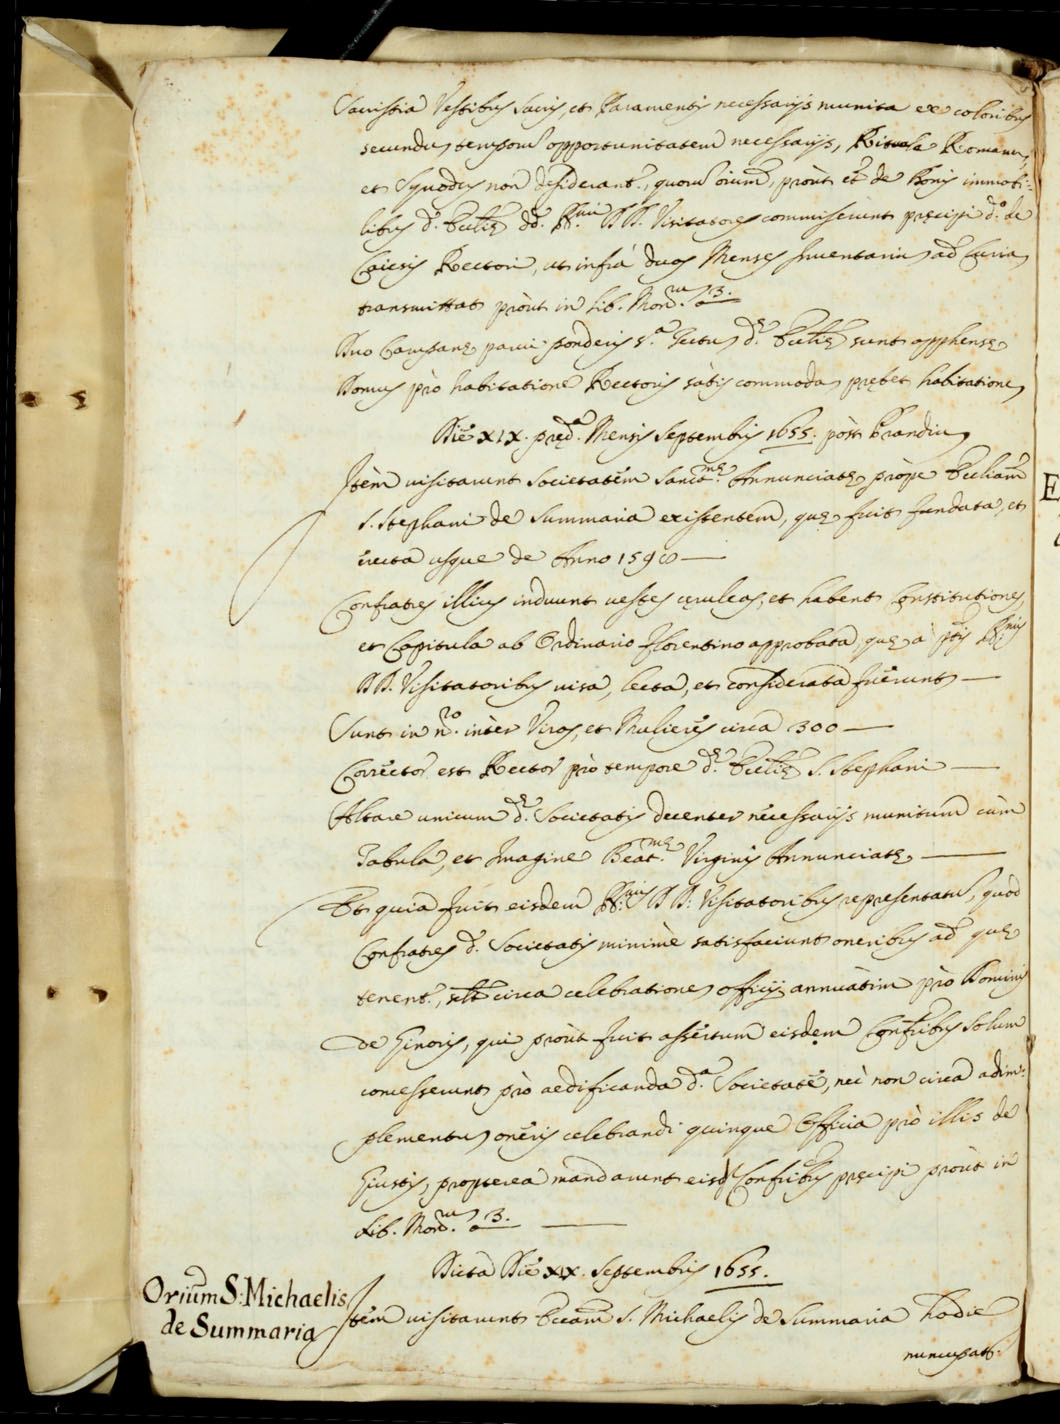 Sacristia Vestibus sacris, et Paramentis necessarijs munita ex coloribus
secundum temporum opportunitatem necessarijs, Rituale Romanum,
et Synodus non desiderant.r, quorum oium, prout et de bonis immobi-
libus d. Ecclie dd. RR.mi DD. Visitatores commiserunt precipi d.o de
Rectori, ut infra duos Menses Inventarium ad Curiam
transmittat prout in Lib. Mon.rum 3.
Duo Campane parvi ponderis s.a Tectum d.e Ecclie sunt apphense
Domus pro habitatione Rectoris satis commodam prebet habitationem
Die XIX. pred.a Mensis Septembris 1655. post Prandium
Item visitarunt Societatem Sanct.me Annunciate prope Eccliam
S. Stephani de Summaria existentem, que fuit fundata, et
erecta usque de Anno 1590
Confratres illius induunt vestes ceruleas, et habent Constitutiones,
et Capitula ab Ordinario Florentino approbata, que a ptis RR.mis
DD. Visitatoribus visa, lecta, et considerata fuerunt
Sunt in n.ro inter Viros, et Mulieres circa 300
Corrector est Rector pro tempore d.e Ecclie S. Stephani
Altare unicum d.e Societatis decenter necessarijs munitum cum
Tabula, et Imagine Beat.me Virginis Annunciate
Et quia fuit eisdem RR.mis DD. Visitatoribus representatum, quod
Confratres d. Societatis minime satisfaciunt oneribus ad que
tenent.r, circa celebrationem officij annuatim pro Dominis
de Ginoris, qui prout fuit assertum eisdem Confribus solum
concesserunt pro aedificanda d.a Societate, nec non circa adim-
plementum oneris celebrandi quinque Officia pro illis de
Giustis, propterea mandarunt eisd. Confribus precipi prout in
Lib. Mon.rum 3.
Dicta Die XIX. Septembris 1655.
Orium S. Michaelis
de Summaria
Item visitarunt S. Michaelis de Summaria hodie
nuncupat.